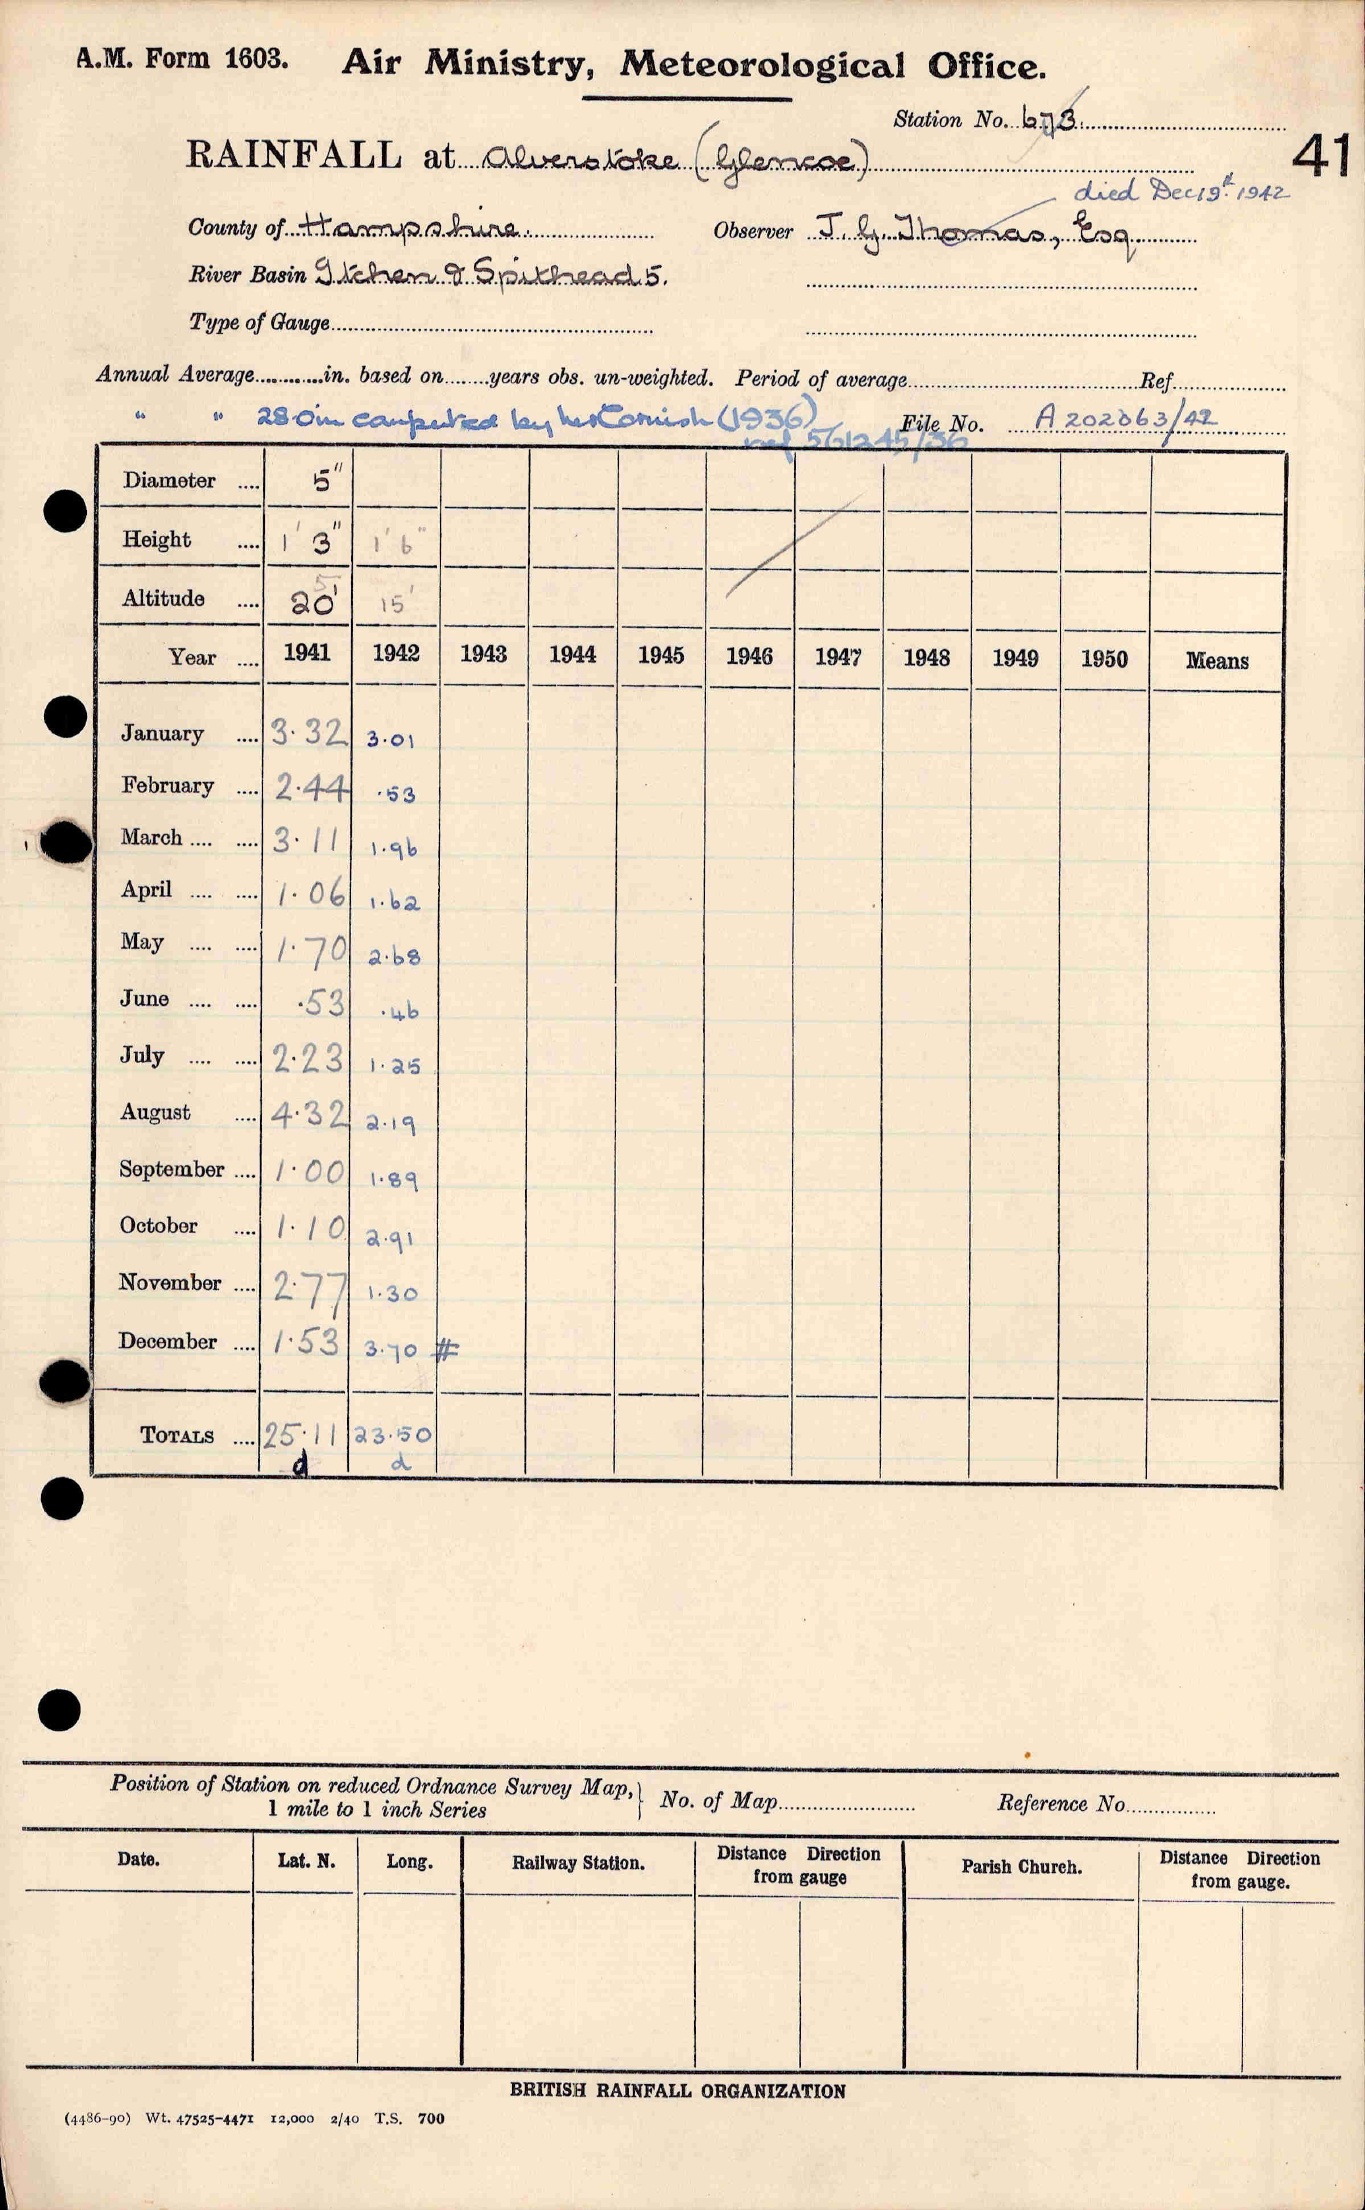 A.M. Form 1603. Air Ministry, Meteorological Office.
Station No. 673
RAINFALL at Alverstoke (Glencoe)
41
died Dec 19th 1942
County of Hampshire. Observer J. G. Thomas, Esq
River Basin Itchen & Spithead 5.
Type of Gauge
Annual Average............in. based on........years obs. un-weighted. Period of average Ref.
" " 28.0in computed by Mr Cornish (1936) File No. A202063/42
ref 561245/36
Diameter .... 5"
Height .... 1' 3" 1' 6"
5
Altitude .... 20' 15'
Year .... 1941 1942 1943 1944 1945 1946 1947 1948 1949 1950 Means
January .... 3.32 3.01
February .... 2.44 .53
March .... .... 3.11 1.96
April .... .... 1.06 1.62
May .... .... 1.70 2.68
June .... .... .53 .46
July .... .... 2.23 1.25
August .... 4.32 2.19
September .... 1.00 1.89
October .... 1.10 2.91
November .... 2.77 1.30
December .... 1.53 3.70 #
TOTALS .... 25.11 23.50
d d
Position of Station on reduced Ordnance Survey Map, } No. of Map Reference No.
1 mile to 1 inch Series
Date. Lat. N. Long. Railway Station. Distance Direction from gauge Parish Church. Distance Direction from gauge.
BRITISH RAINFALL ORGANIZATION
(4486-90) Wt. 47525-4471 12,000 2/40 T.S. 700